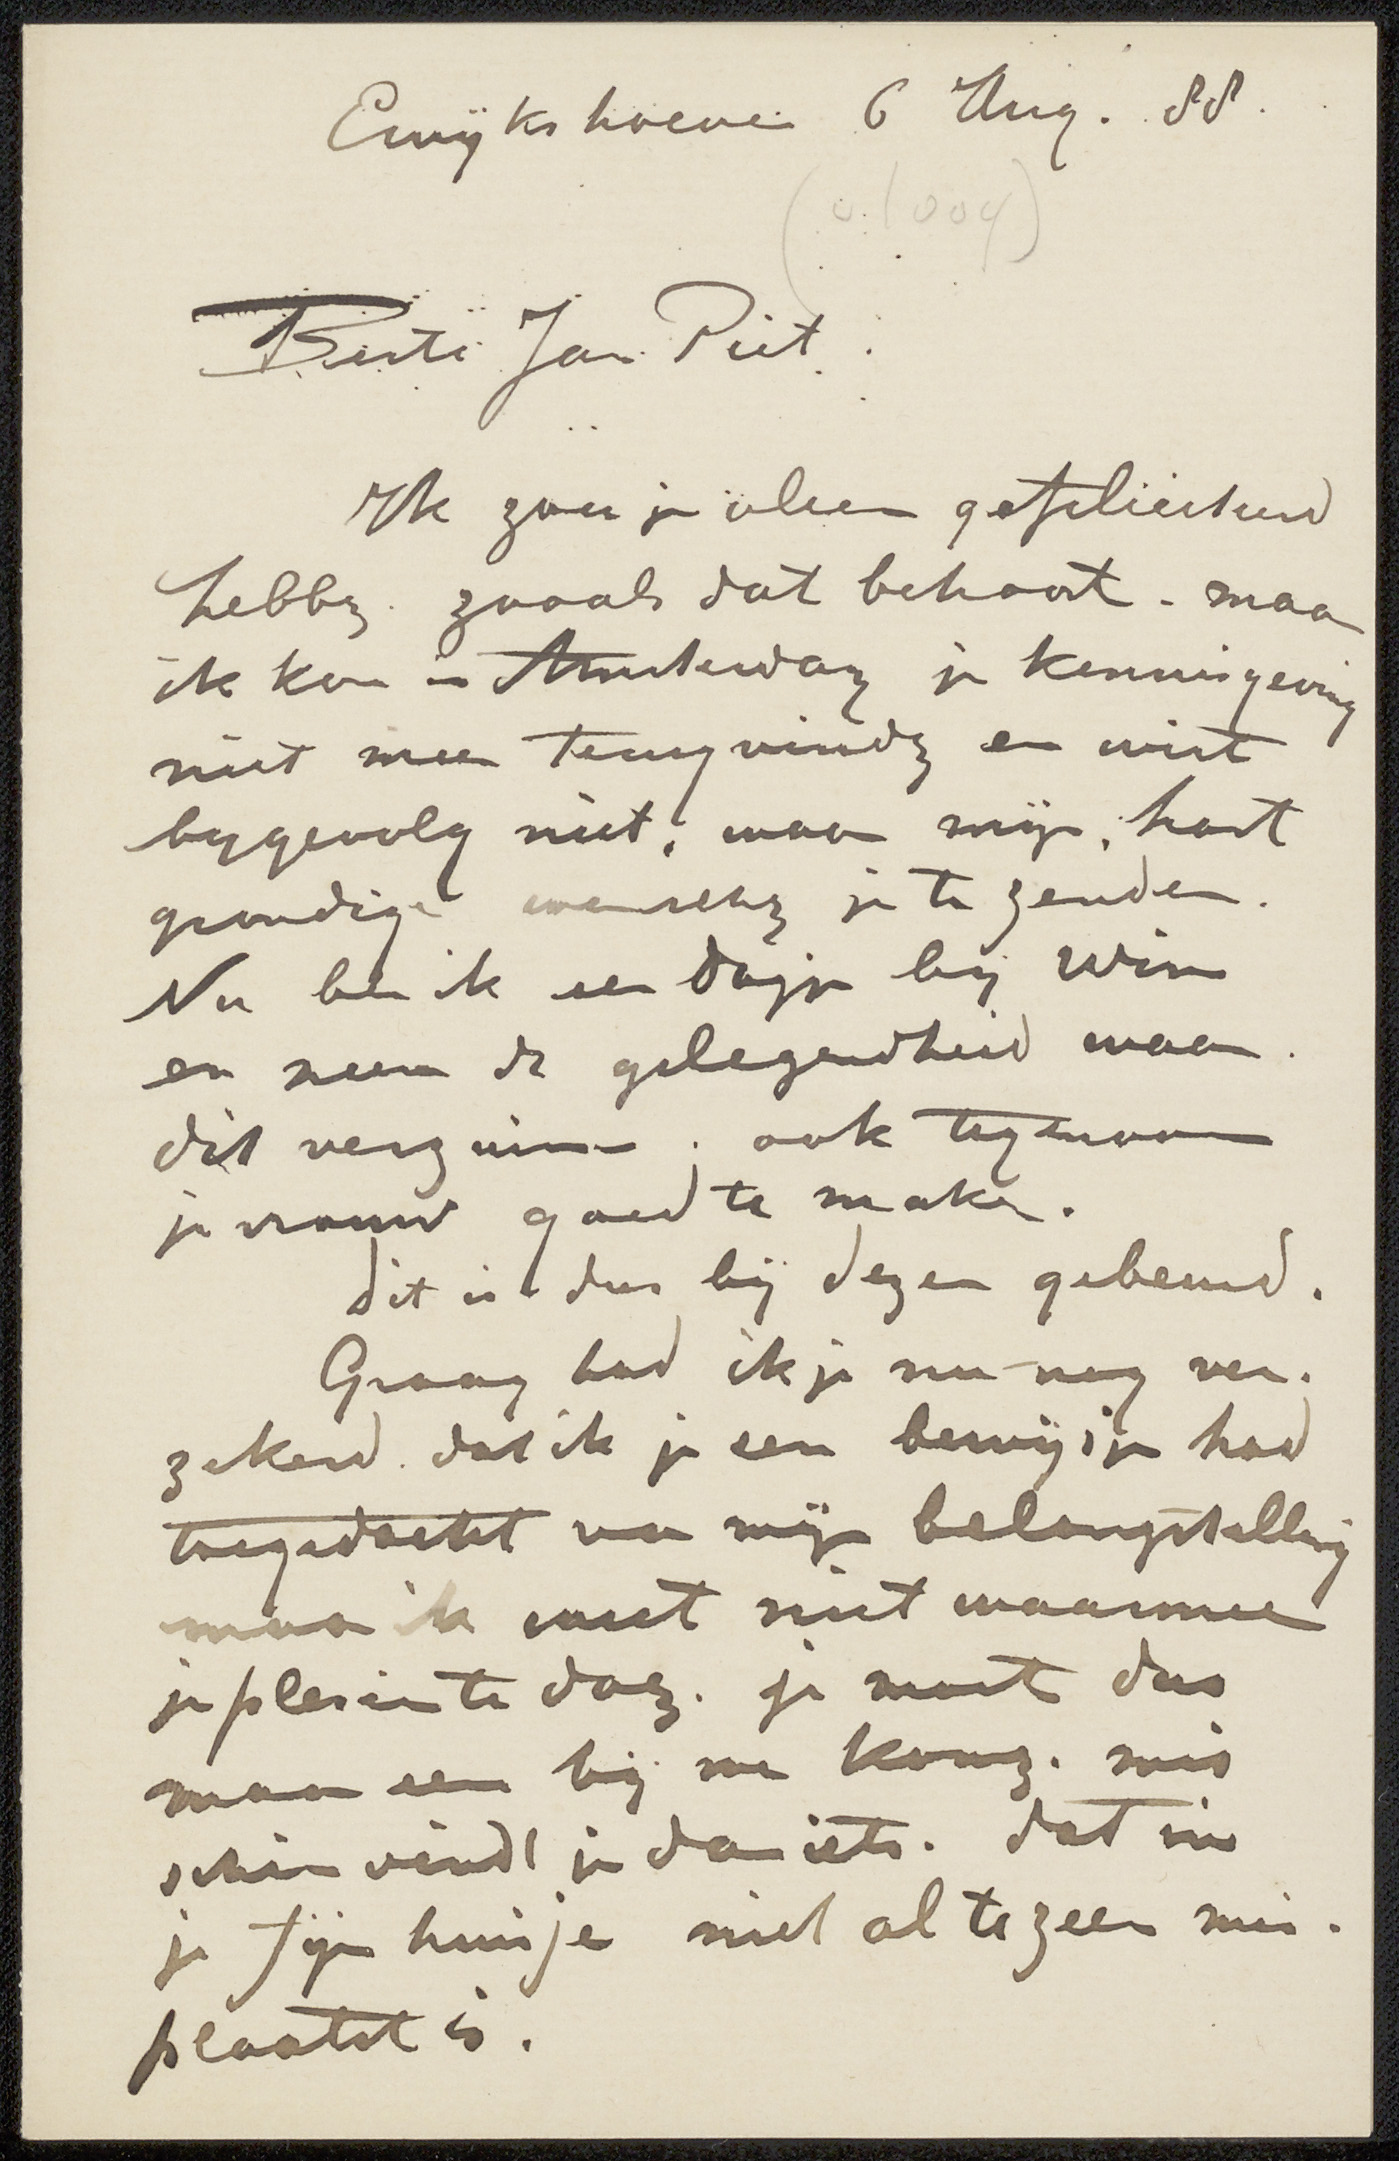 Ewijkshoeve 6 Aug. 88.
Beste Jan Piet.
Ik zou je al een gefeliciteerd
hebben zooals dat behoort. maar
ik kon in Amsterdam je kennisgeving
niet meer terugvinden en wist
bijgevolg niet, waar mijn hart
grondige wenschen je te zenden.
Nu ben ik een dagje bij Wim
en neem de gelegendheid waar
dit verzuim. ook tegenover
je vrouw goed te maken.
dit is dus bij dezen gebeurd.
Graag had ik je nu nog ver.
zekerd dat ik je een bewijsje had
toegedacht van mijn belangstelling
maar ik weet niet waarmee
je plesier te doen. je moet dus
maar een bij me komen. mis
schien vindt je dan iets. dat in
je fijn huisje niet al te zeer mis.
plaatst is.